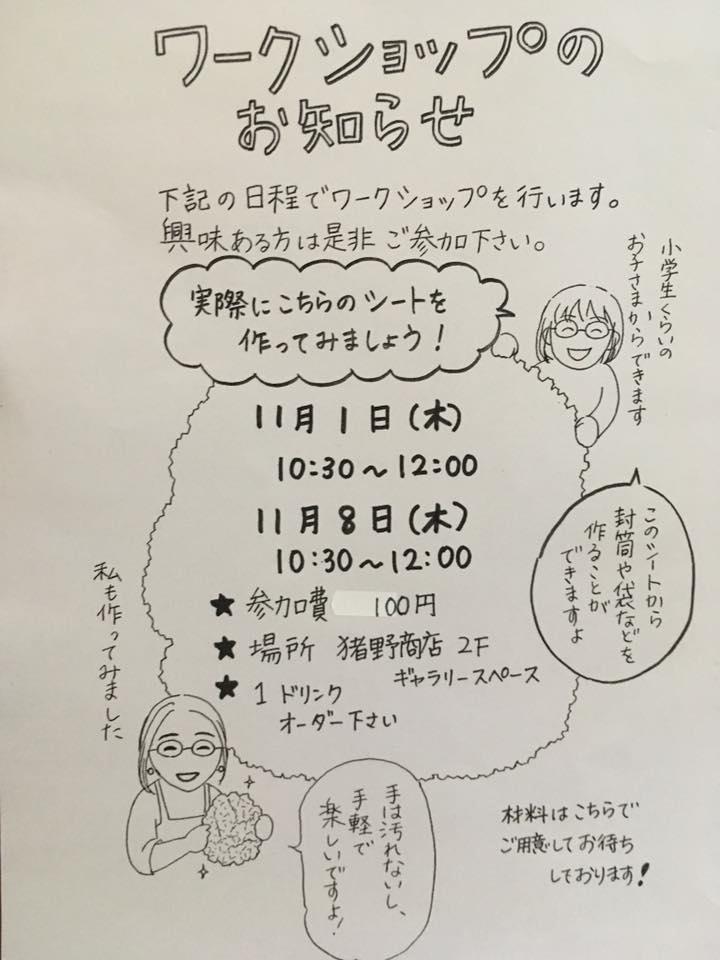 ワークショップの
お知らせ
下記の日程でワークショップを行います。
興味ある方は是非ご参加下さい。
小学生くらいの
お子さまからできます
実際にこちらのシートを
作ってみましょう！
11月1日(木)
10:30～12:00
11月8日(木)
10:30～12:00
★ 参加費 100円
★ 場所 猪野商店 2F
ギャラリースペース
★ 1ドリンク
オーダー下さい
このシートから
封筒や袋などを
作ることが
できますよ
私も作ってみました
手は汚れないし、
手軽で
楽しいですよ！
材料はこちらで
ご用意してお待ち
しております！